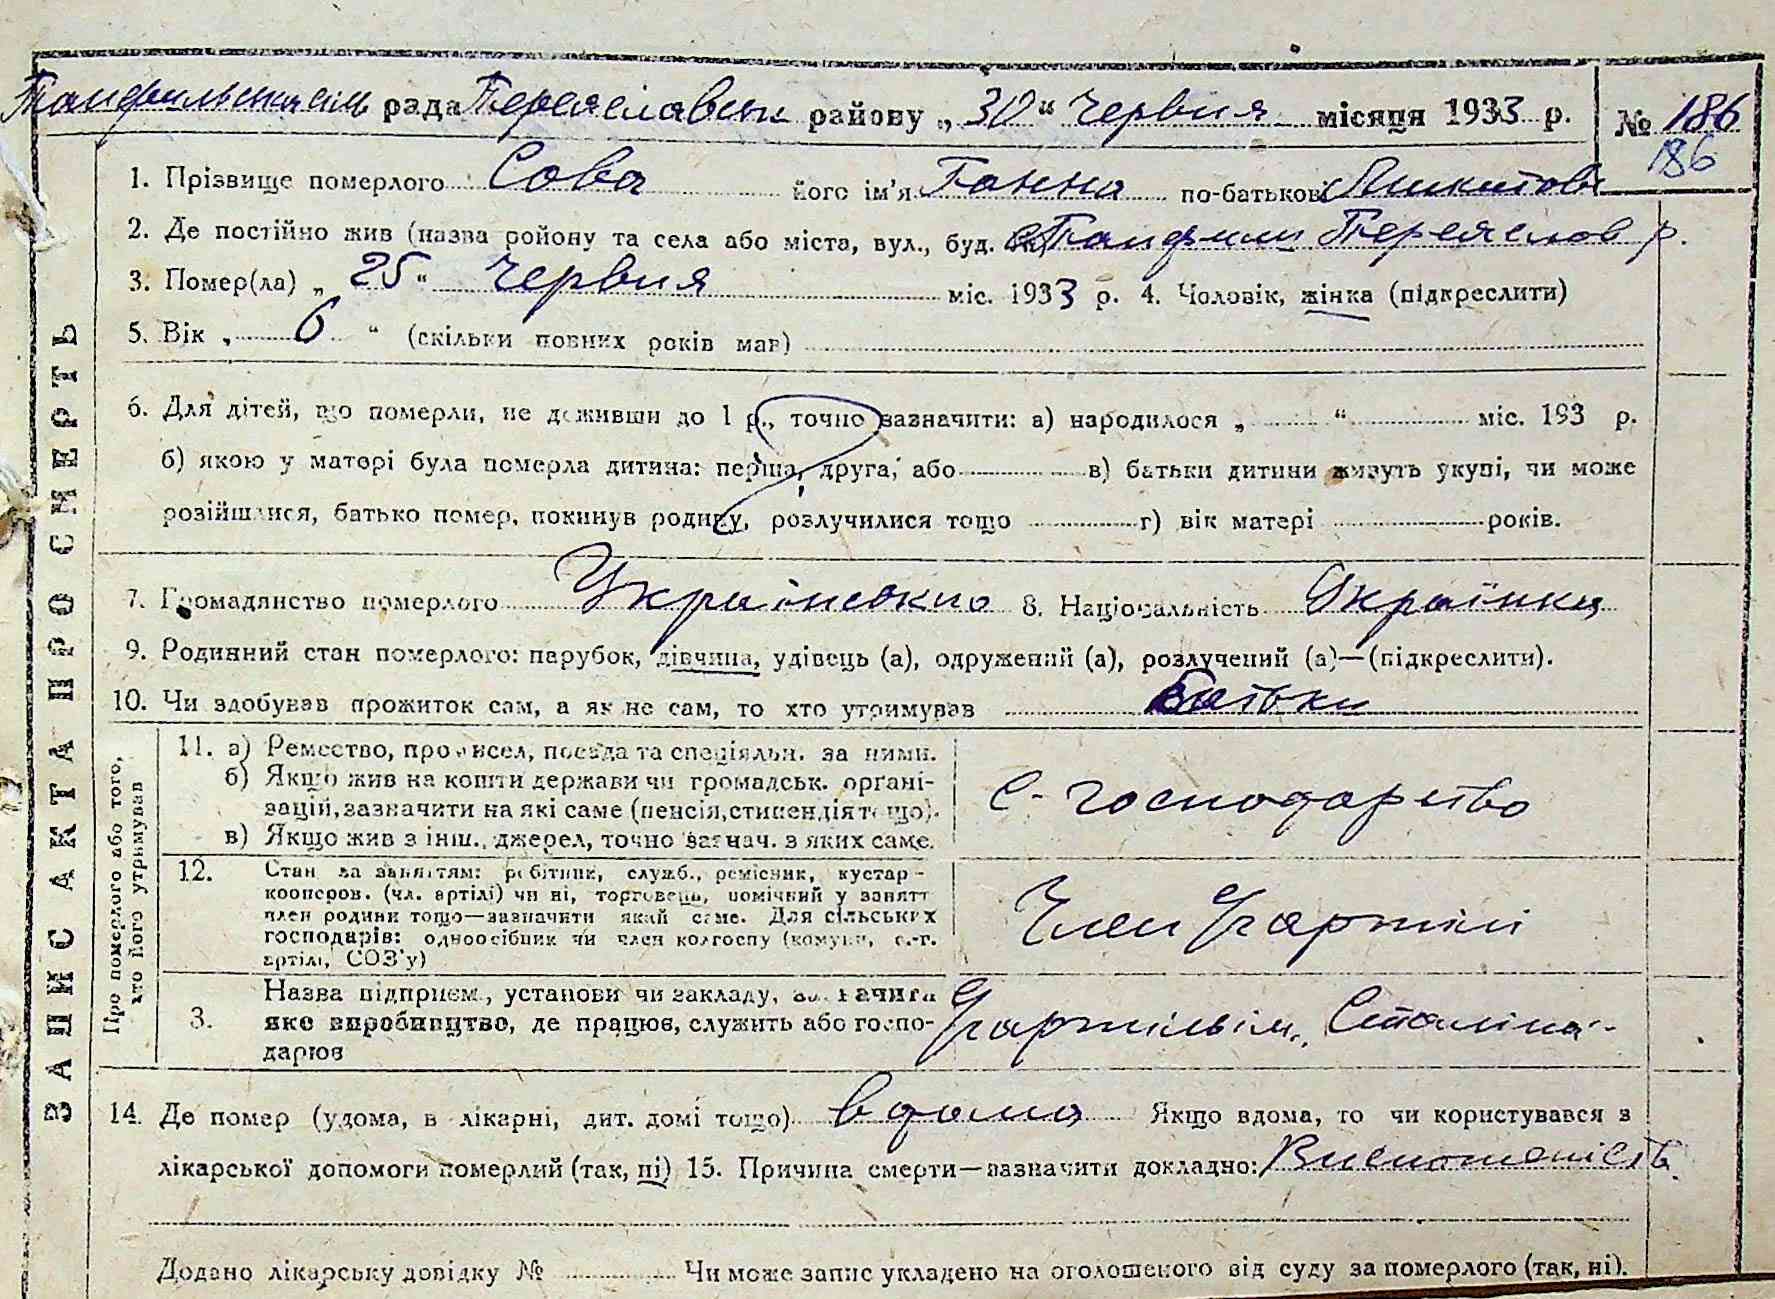 Панфильська сіль рада Переяславськ району „30“ Червня місяця 1933 р. № 186
186
1. Прізвище померлого Сова його ім'я Ганна по-батькові Микитовн
2. Де постійно жив (назва району та села або міста, вул., буд. с. Панфили Переяслов р.
3. Помер(ла) „25“ Червня міс. 1933 р. 4. Чоловік, жінка (підкреслити)
5. Вік „6“ (скільки повних років мав)
6. Для дітей, що померли, не доживши до 1 р., точно зазначити: а) народилося „ “ міс. 193 р.
б) якою у матері була померла дитина: перша, друга, або в) батьки дитини живуть укупі, чи може
розійшлися, батько помер, покинув родину, розлучилися тощо г) вік матері років.
7. Громадянство померлого Українською 8. Національність Українка
9. Родинний стан померлого: парубок, дівчина, удівець (а), одружений (а), розлучений (а)—(підкреслити).
10. Чи здобував прожиток сам, а як не сам, то хто утримував батьки
11. а) Ремество, промисел, посада та спеціяльн. за ними.
б) Якщо жив на кошти держави чи громадськ. органі-
зацій, зазначити на які саме (пенсія, стипендія тощо).
в) Якщо жив з інш. джерел, точно зазнач. з яких саме.
с-господарство
12. Стан за заняттям: робітник, служб., ремісник, кустар-
кооперов. (чл. артілі) чи ні, торговець, помічний у занятт
член родини тощо—зазначити який саме. Для сільських
господарів: одноосібник чи член колгоспу (комуни, с.-г.
артілі, СОЗ'у)
Член с/г артілі
3. Назва підприєм., установи чи закладу, зазначити
яке виробництво, де працює, служить або госпо-
дарює
с/г артіль ім. Сталіна
14. Де помер (удома, в лікарні, дит. домі тощо) вдома Якщо вдома, то чи користувався з
лікарської допомоги померлий (так, ні) 15. Причина смерти—зазначити докладно: Виснаженість
Додано лікарську довідку № Чи може запис укладено на оголошеного від суду за померлого (так, ні).
ЗАПИС АКТА ПРО СМЕРТЬ
Про померлого або того,
хто його утримував